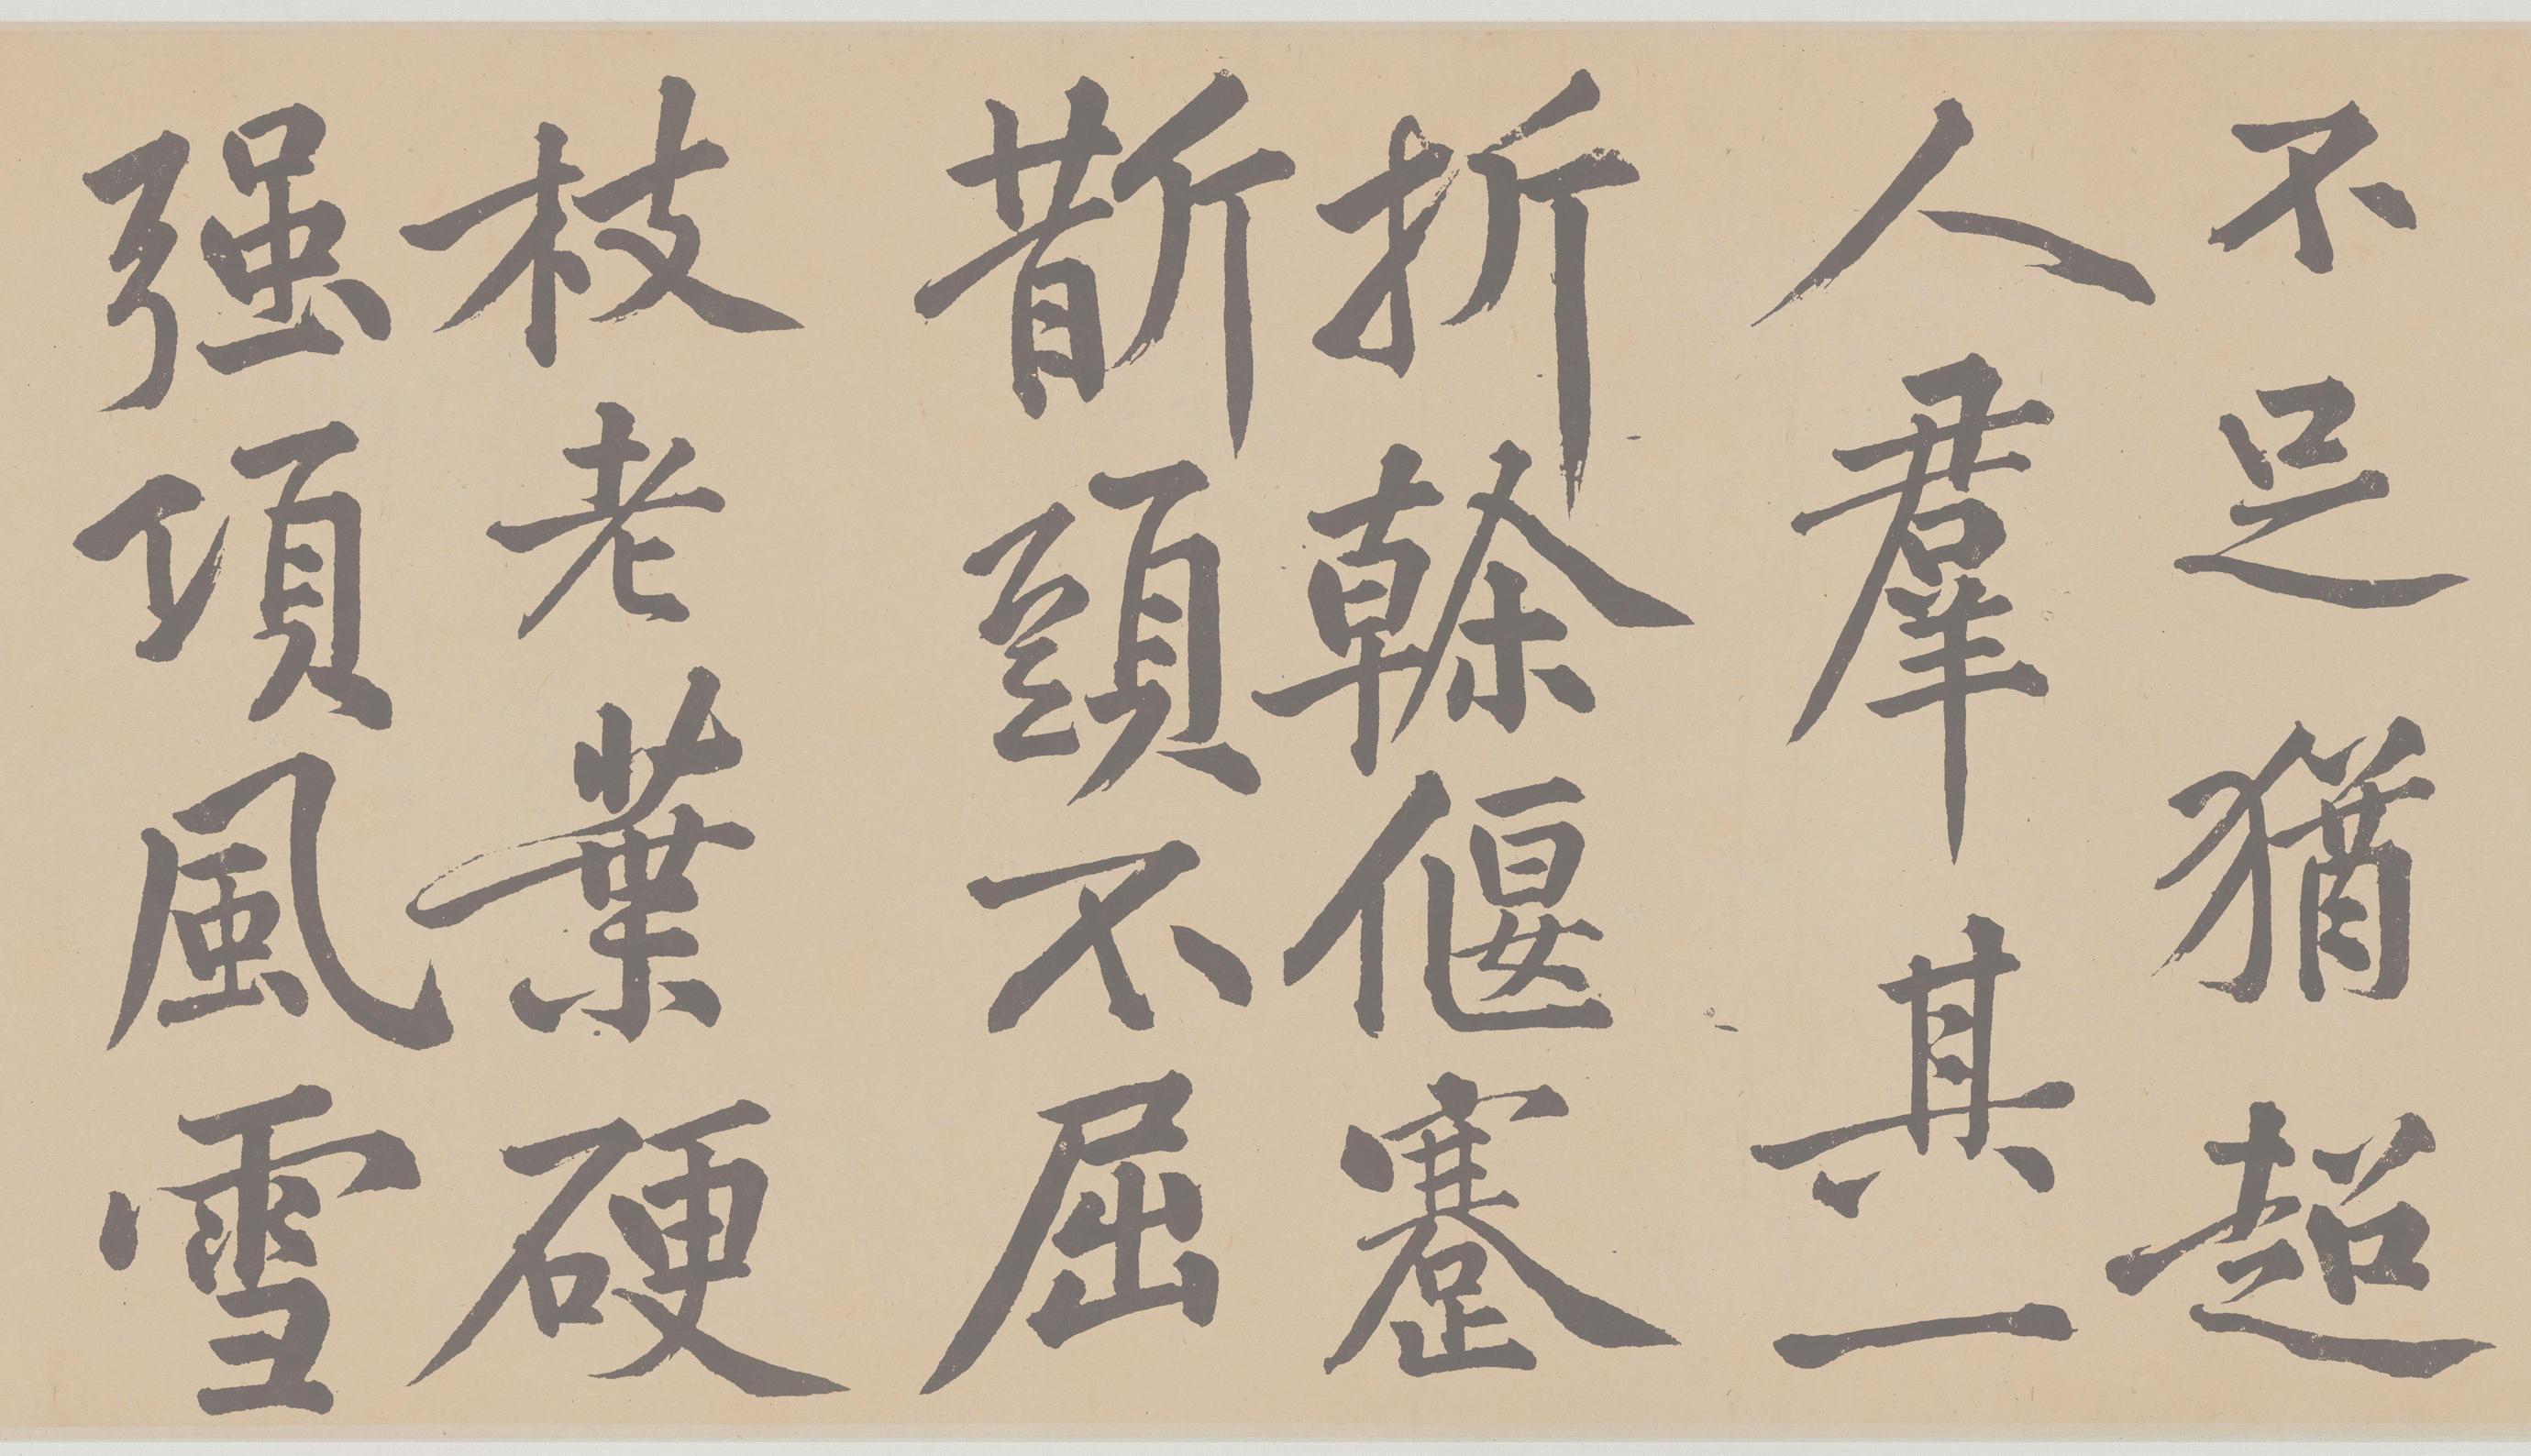 不足猶超
人羣其一
折榦偃蹇
斮頭不屈
枝老葉硬
强項風雪